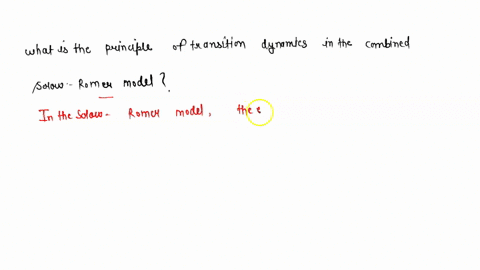 what is the principle of transition dynamics in the combined
solow - Romer model ?.
In the solow - Romer model, the